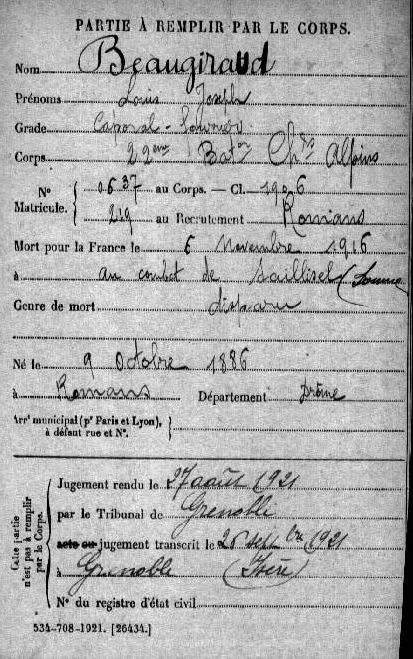 PARTIE À REMPLIR PAR LE CORPS.
Nom Beaugiraud
Prénoms Louis Joseph
Grade Caporal-Fourrier
Corps 22ème Baton Chrs Alpins
N° Matricule. { 0637 au Corps. — Cl. 1906
219 au Recrutement Romans
Mort pour la France le 6 Novembre 1916
à au combat de Saillisel (Somme)
Genre de mort disparu
Né le 9 Octobre 1886
à Romans Département Drôme
Arrt municipal (pr Paris et Lyon), à défaut rue et N°. }
Cette partie n'est pas à remplir par le Corps.
Jugement rendu le 27 août 1921
par le Tribunal de Grenoble
acte ou jugement transcrit le 28 septbre 1921
à Grenoble (Isère)
N° du registre d'état civil
534-708-1921. [26434.]